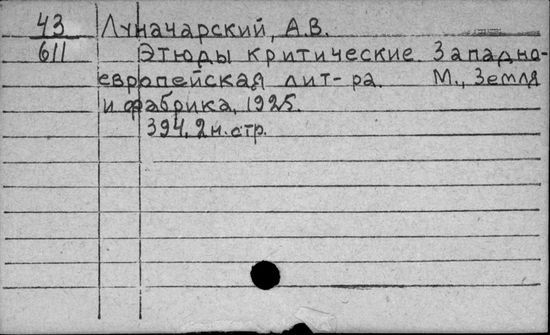 43 Луначарский, А.В.
611 Этюды критические. Западно-
европейская лит-ра. М., Земля
и фабрика, 1925.
394, 2 н. стр.